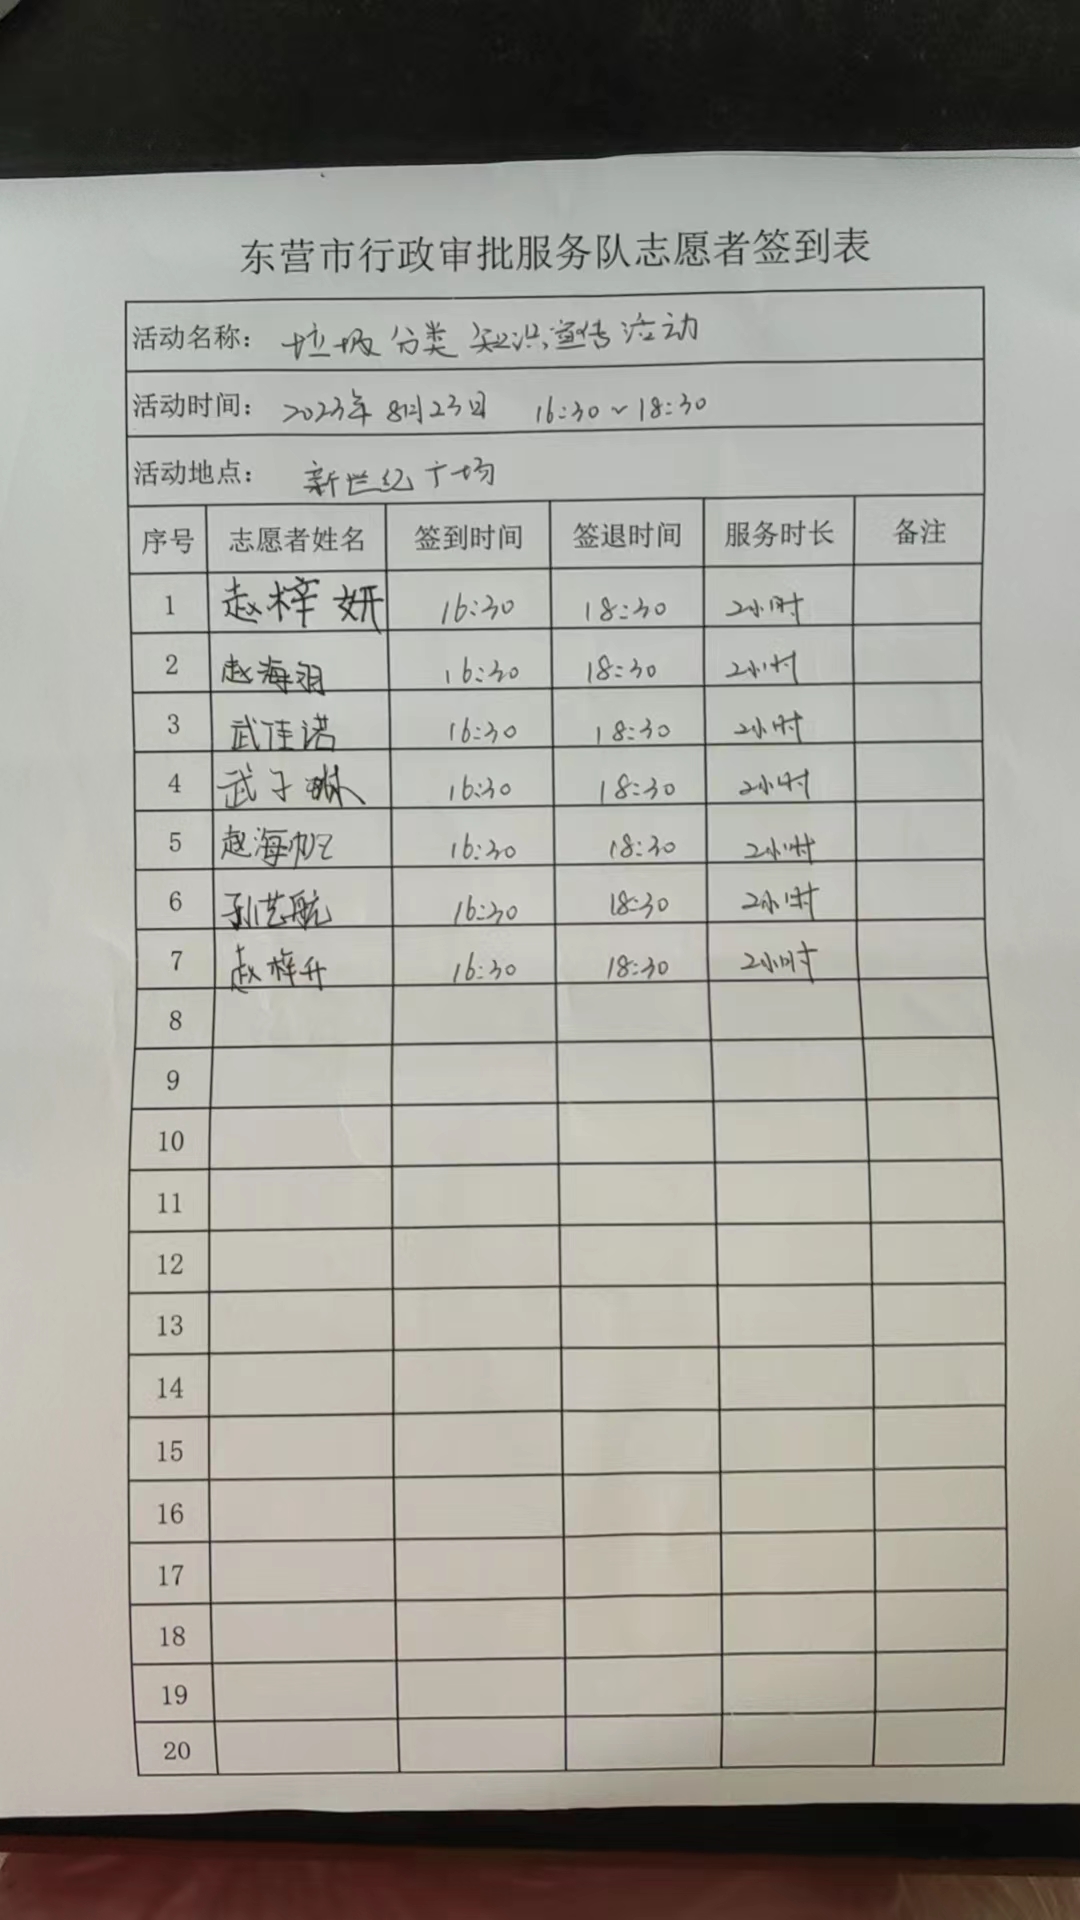 东营市行政审批服务队志愿者签到表
活动名称： 垃圾分类知识宣传活动
活动时间： 2023年8月23日 16:30~18:30
活动地点： 新世纪广场
序号 志愿者姓名 签到时间 签退时间 服务时长 备注
1 赵梓妍 16:30 18:30 2小时
2 赵海羽 16:30 18:30 2小时
3 武佳诺 16:30 18:30 2小时
4 武子琳 16:30 18:30 2小时
5 赵海 16:30 18:30 2小时
6 孙艺航 16:30 18:30 2小时
7 赵梓升 16:30 18:30 2小时
8
9
10
11
12
13
14
15
16
17
18
19
20